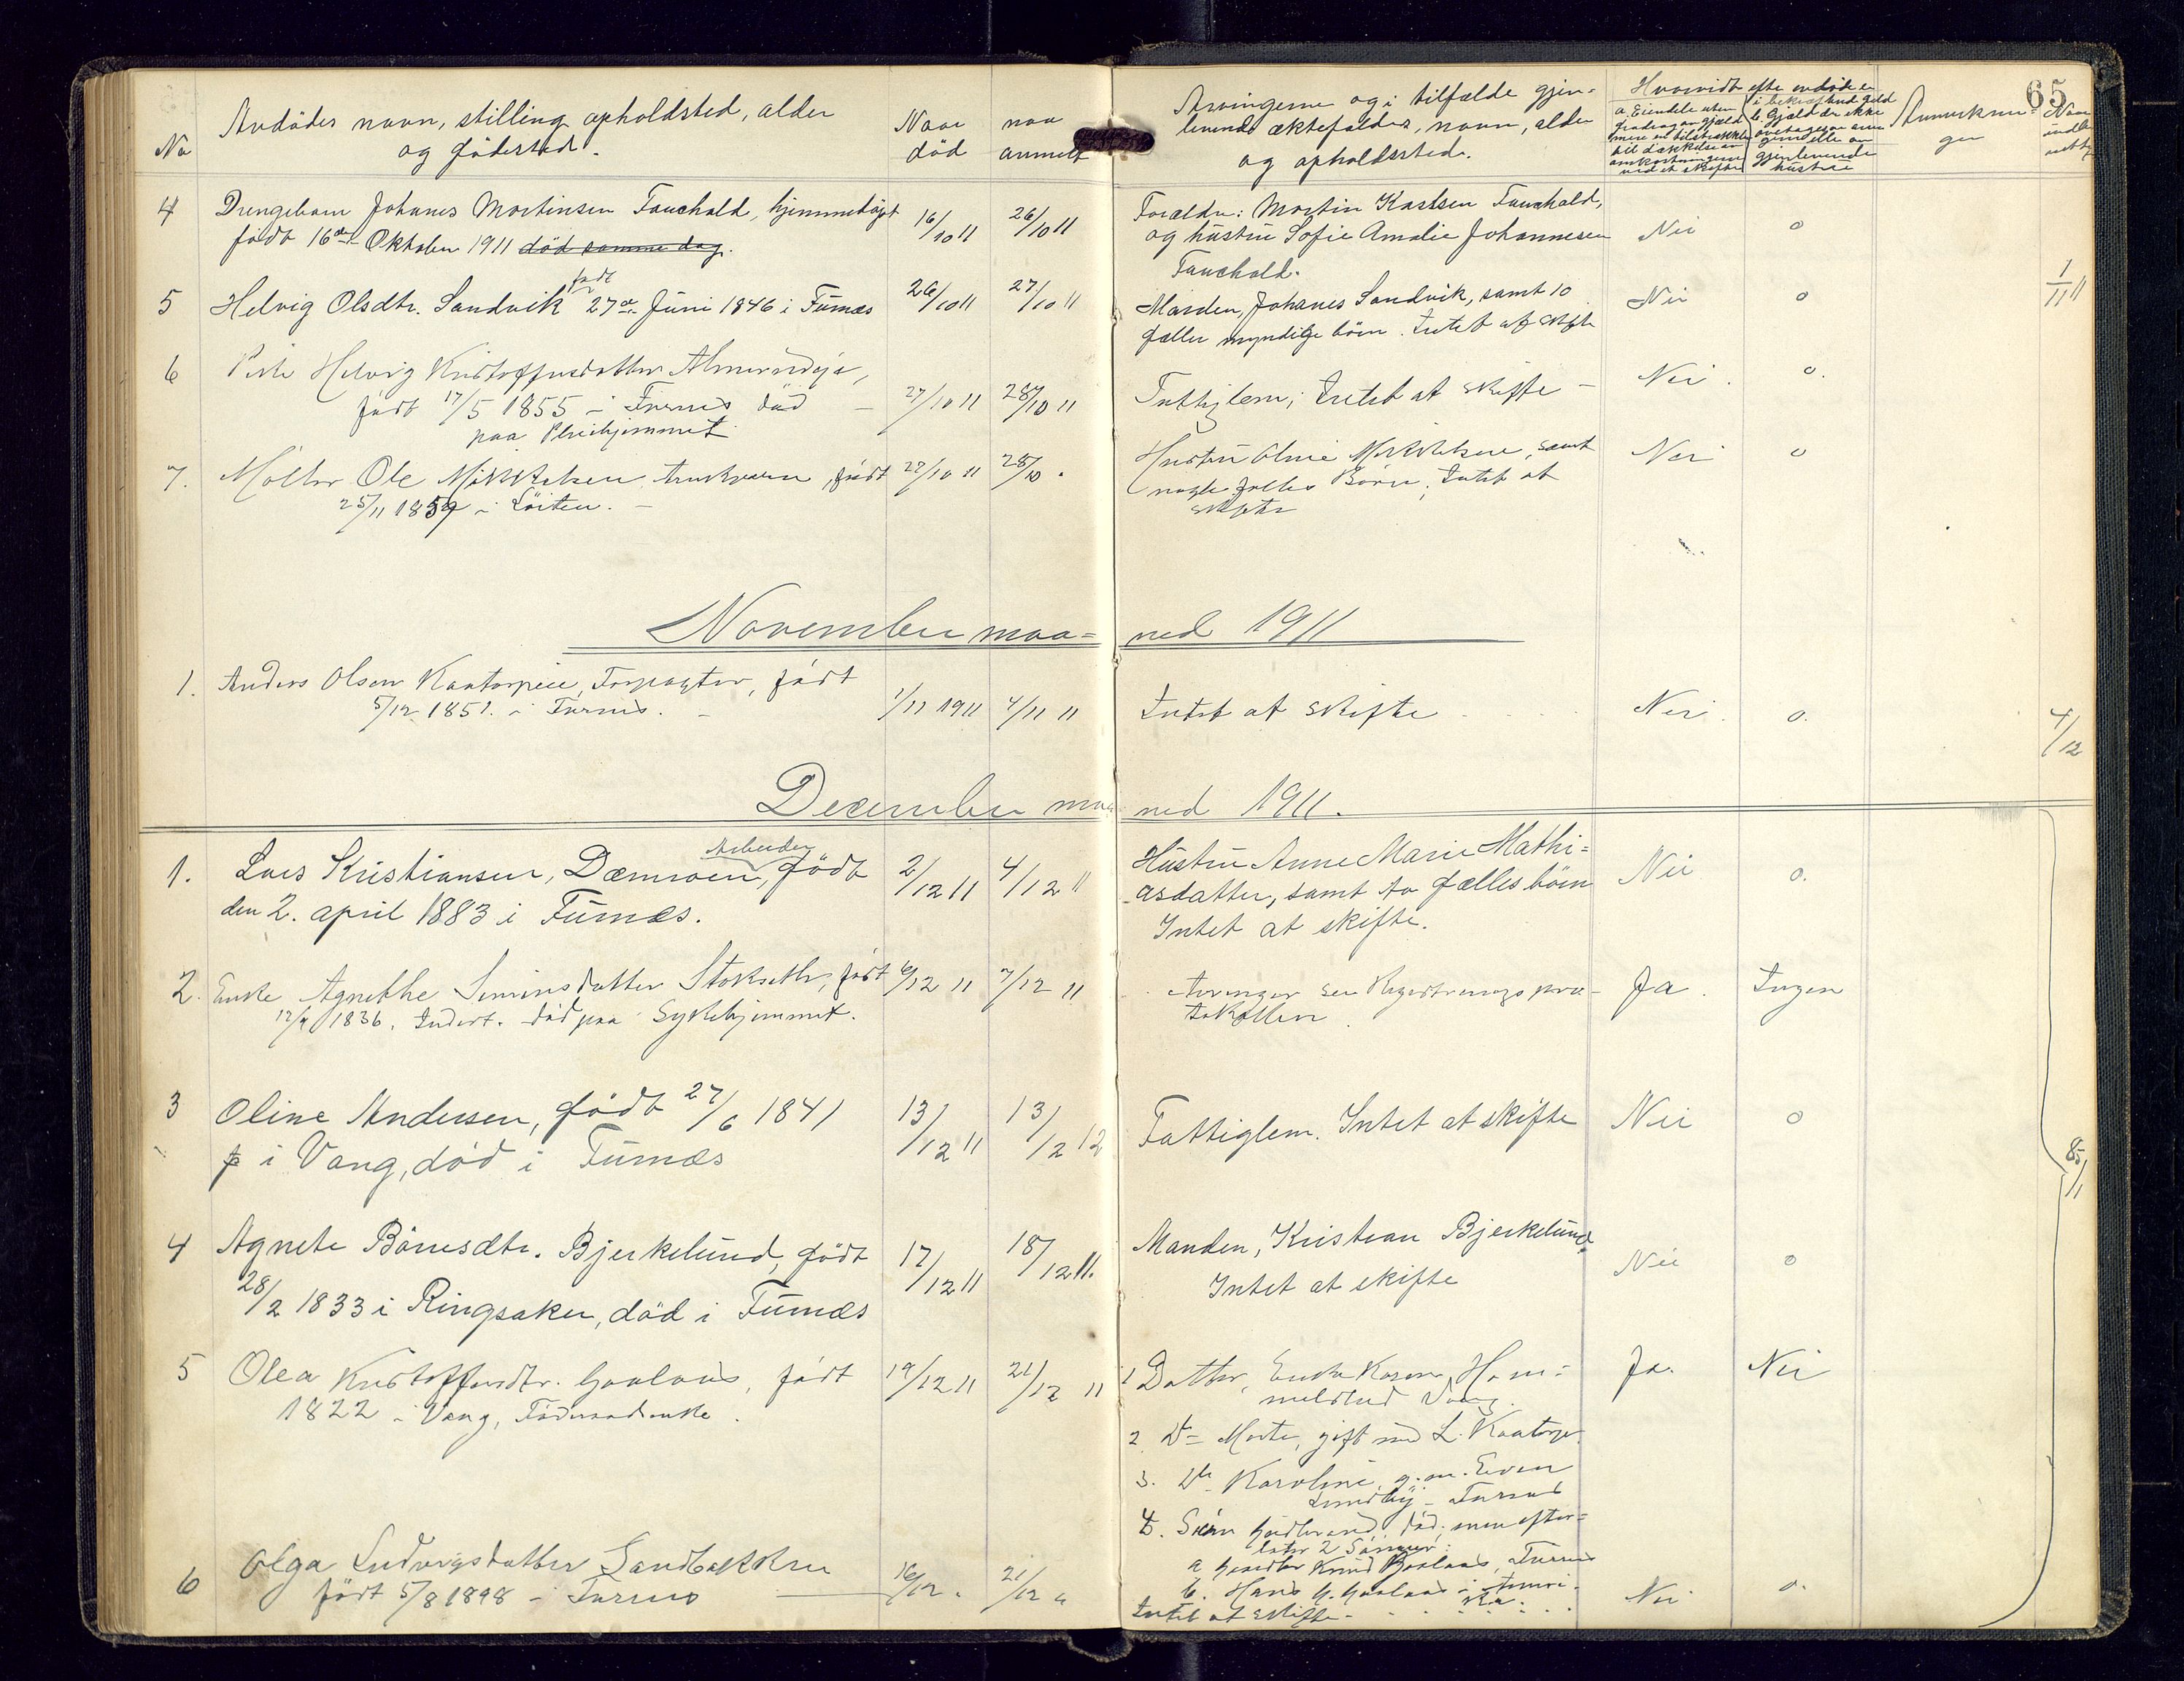 65
No
Avdødes navn, stilling opholdsted, alder
og fødested.
Naar
død
naar
anmelt
Arvingerne og i tilfælde gjen-
levende ektefælles, navn, alder
og opholdssted.
Hvorvidt efter avdøde er
a. Eiendele uten
fradrag av gjæld
mere en tilstrækkelig
til dækkelse av
omkostningerne
ved et skifte
b. Gjæld der ikke
overtages av arvin
gerne eller av
gjenlevende
hustru
Anmerknin-
ger
Naar
indb
4 Drengebarn Johanes Martinsen Fauchald, hjemmedøpt
født 16de Oktober 1911 død samme dag.
16/10 11 26/10 11
Forældre: Martin Karlsen Fauchald,
og hustru Sofie Amalie Johannesen
Fauchald.
Nei 0
5 Helvig Olsdtr. Sandvik født 27de Juni 1846 i Furnæs
26/10 11 27/10 11
Manden, Johanes Sandvik, samt 10
fælles myndige børn. Intet at skifte
Nei 0
1/11 11
6 Pike Helvig Kristoffersdatter
født 17/5 1855 i Furnes død
paa Pleiehjemmet
27/10 11 28/10 11
Fattiglem; Intet at skifte
Nei. 0.
7. Møller Ole Mikkelsen, født
25/11 1859 i Løiten.
27/10 11 28/10
Hustru Oline Mikkelsen, samt
nogle fælles Børn; Intet at
skifte
Nei 0
November maa= ned 1911
1. Anders Olsen Kaatorpeie, Forpagter, født
5/12 1851. i Furnes.
1/11 1911 4/11 11
Intet at skifte
Nei. 0.
4/12
December maa ned 1911.
1. Lars Kristiansen, Dæmroen, Arbeider født
den 2. april 1883 i Furnæs.
2/12 11 4/12 11
Hustru Anne Marie Mathi=
asdatter, samt to fælles børn
Intet at skifte.
Nei 0.
2. Enke Agnethe Simensdatter Stokseth, født
12/4 1836. Inderst. død paa Sykehjemmet.
6/12 11 7/12 11
Arvinger se Registreringspro-
tokollen.
Ja. Ingen
3 Oline Andersen, født 27/6 1841
i Vang, død i Furnæs
13/12 11 13/12 12
Fattiglem. Intet at skifte
Nei 0
8/1
4 Agnete Børresdtr. Bjerkelund, født
28/2 1833 i Ringsaker, død i Furnæs
17/12 11 18/12 11.
Manden, Kristian Bjerkelund
Intet at skifte
Nei 0
5 Olea Kristoffersdtr. Gaalaas, født
1822 i Vang, Føderaadsenke.
19/12 11 21/12 11
1 Datter, Enke Karen Ham=
meldtad Vang.
2. Do Marte, gift med L. Kaatorp
3. Do Karoline g. m. Even
Lundby Furnes
4. Søn Gudbrand død; men efter=
later 2 Sønner:
a. Knud Gaalaas, Furnes
b. Hans G. Gaalaas i Ameri-
ka.
Ja. Nei
6 Olga Ludvigsdatter Sandbakken
født 5/8 1898 i Furnes
16/12 21/12
Intet at skifte
Nei 0.